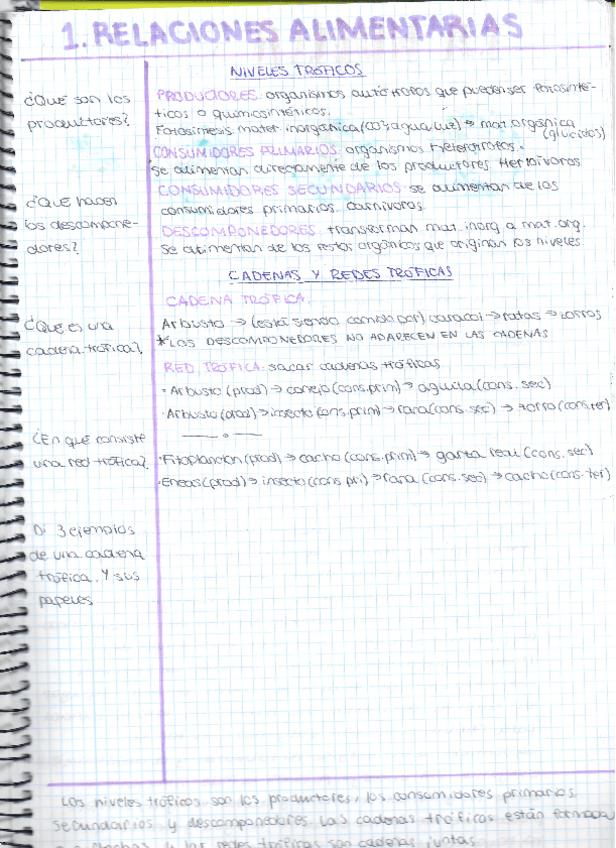 1. RELACIONES ALIMENTARIAS
NIVELES TRÓFICOS
¿Qué son los
productores?
PRODUCTORES: organismos autótrofos que pueden ser fotosinté-
ticos o quimiosintéticos.
Fotosíntesis: mater inorgánica (CO2, agua, luz) → mat. orgánica
(glúcidos)
CONSUMIDORES PRIMARIOS: organismos heterótrofos.
Se alimentan directamente de los productores. Herbívoros
¿Qué hacen
los descompone-
dores?
CONSUMIDORES SECUNDARIOS: se alimentan de los
consumidores primarios. Carnívoros
DESCOMPONEDORES: transforman mat. inorg a mat. org.
Se alimentan de los restos orgánicos que originan los niveles.
CADENAS Y REDES TRÓFICAS
¿Que es una
cadena trófica?
CADENA TRÓFICA:
Arbusto → (está siendo comido por) caracol → ratas → zorros
*LOS DESCOMPONEDORES NO APARECEN EN LAS CADENAS
RED TRÓFICA: sacar cadenas tróficas
· Arbusto (prod) → conejo (cons. prim) → aguila (cons. sec)
· Arbusto (prod) → insecto (cons. prim) → rana (cons. sec) → zorro (cons. ter)
¿En que consiste
una red trófica?
· Fitoplancton (prod) → cacho (cons. prim) → garza real (cons. sec)
· Eneas (prod) → insecto (cons pri) → rana (cons. sec) → cacho (cons. ter)
Di 3 ejemplos
de una cadena
trófica. Y sus
papeles
Los niveles tróficos son los productores, los consumidores primarios
secundarios y descomponedores. Las cadenas tróficas están formada
y las redes tróficas son cadenas juntas